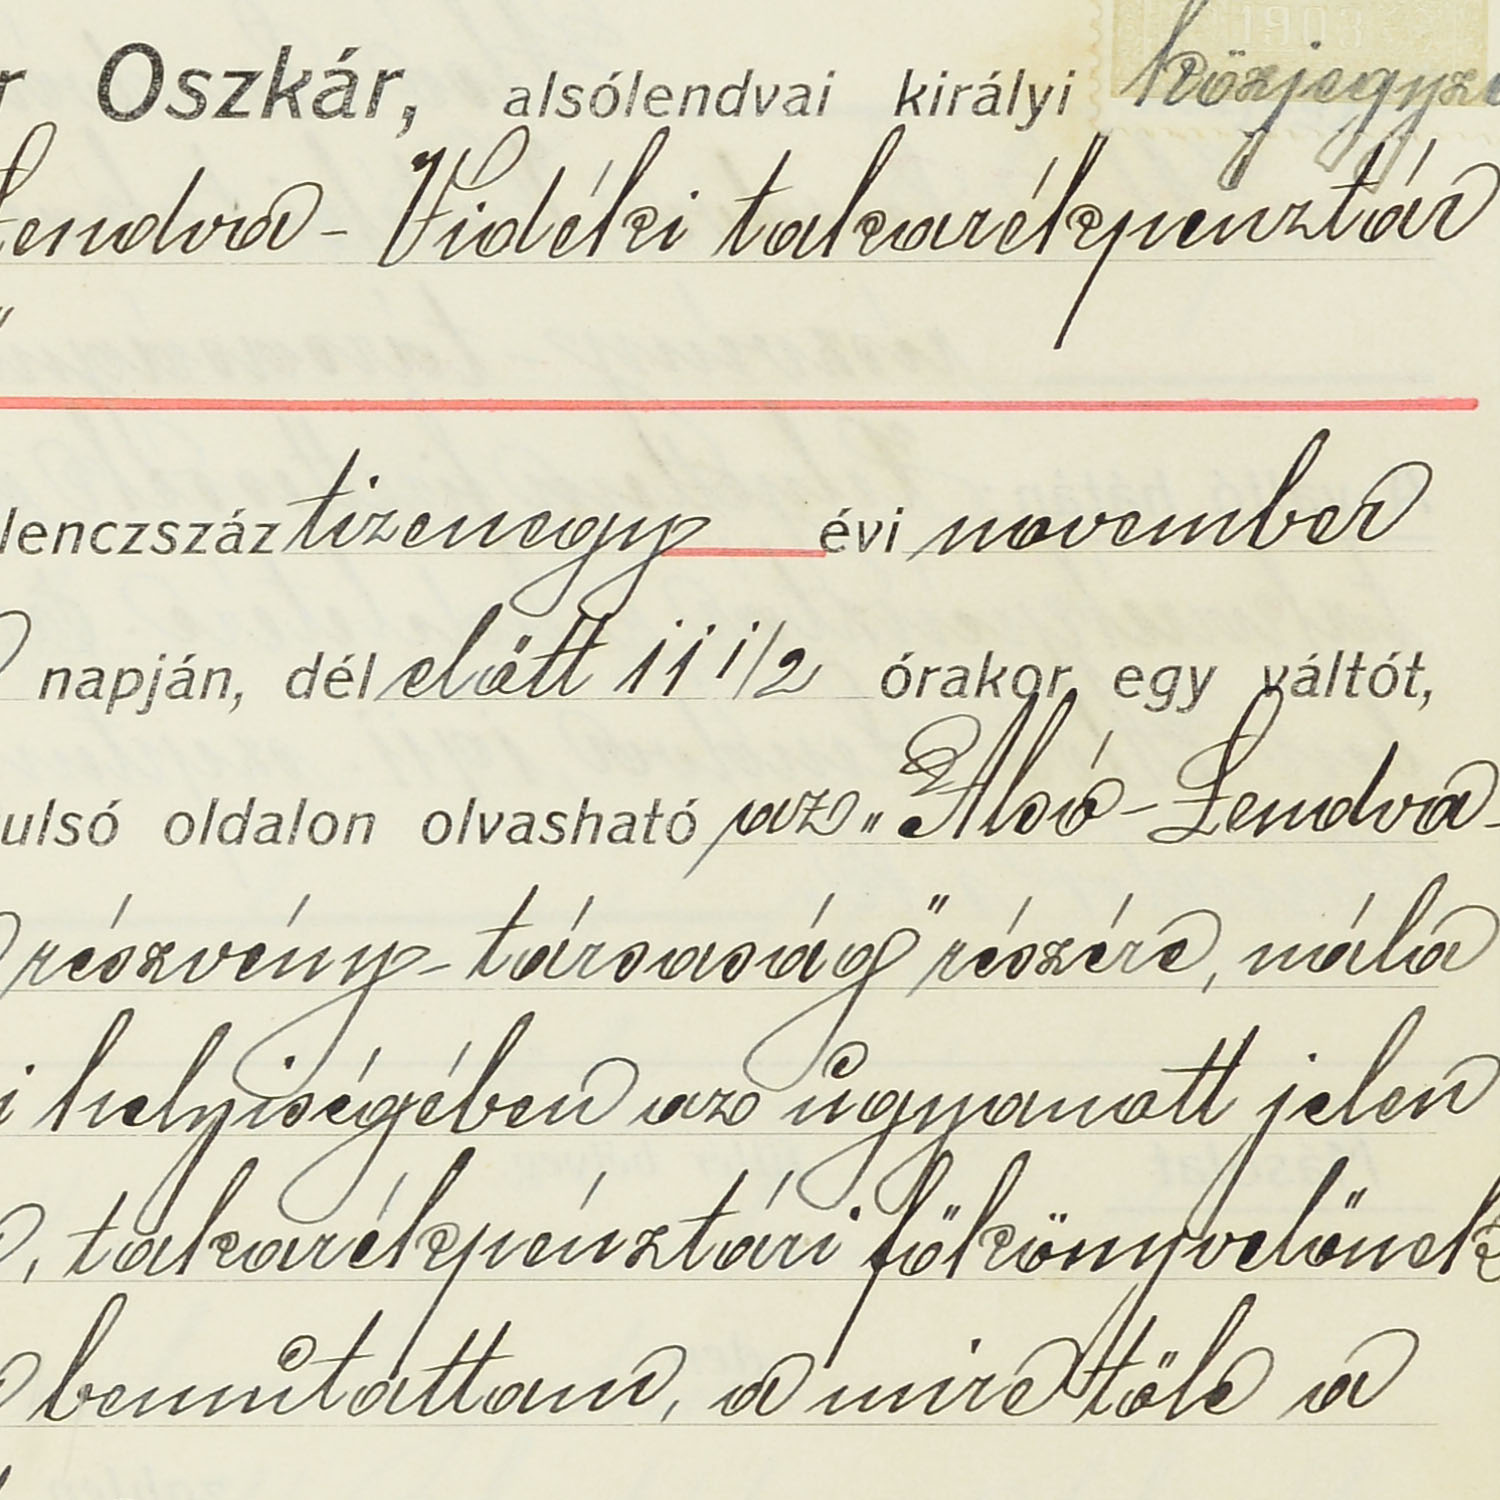 r Oszkár, alsólendvai királyi közjegyző
Lendva-Vidéki takarékpénztár
"
lenczszáz tizenegy évi november
napján, dél előtt 11 1/2 órakor egy váltót,
ulsó oldalon olvasható az „Alsó-Lendva-
részvény-társaság" részére, nála
i helyiségében az ugyanott jelen
, takarékpénztári főkönyvelőnek
bemutattam, a mire tőle a